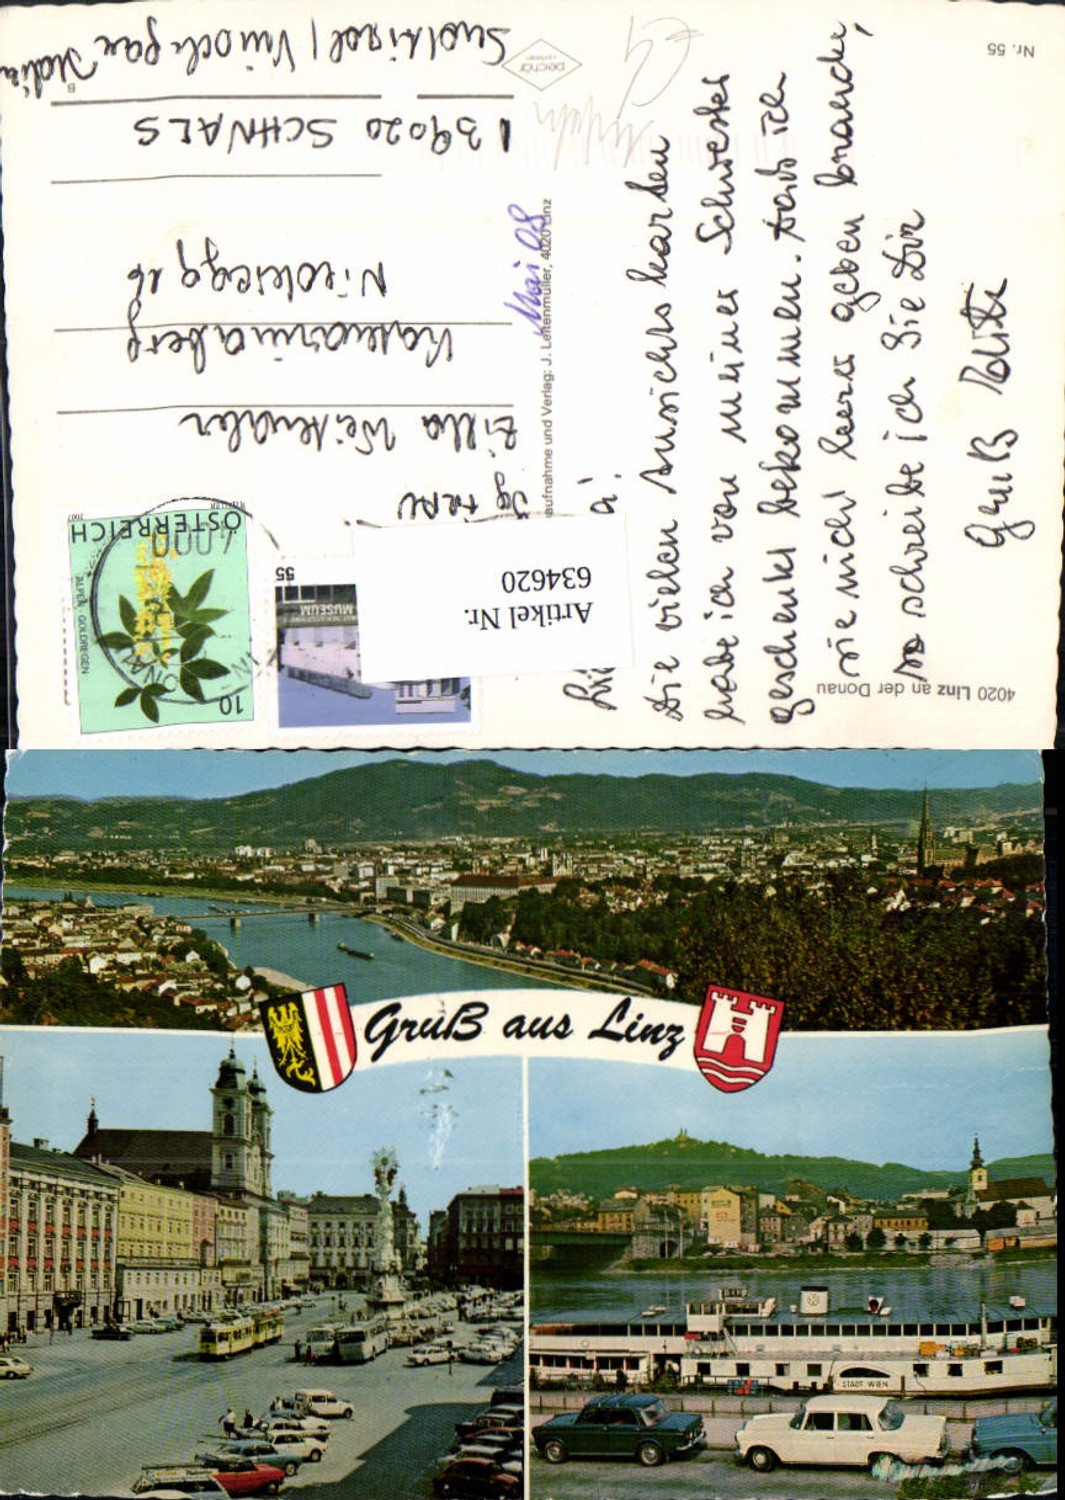 Nr. 55
4020 Linz an der Donau
Die vielen Ansichtskarten
habe ich von meiner Schwester
geschenkt bekommen. Dass ich
sie nicht leer geben brauche,
so schreibe ich Sie Dir
Gruß
aufnahme und Verlag: J. Leitenmüller, 4020 Linz
Mai 08
Frau
Weitenthaler
Katharinaberg
I 39020 SCHNALS
Südtirol / Vinschgau Italien
B
ÖSTERREICH
2007
ALPEN-GOLDREGEN
10
55
MUSEUM
Artikel Nr.
634620
Gruß aus Linz
STADT WIEN